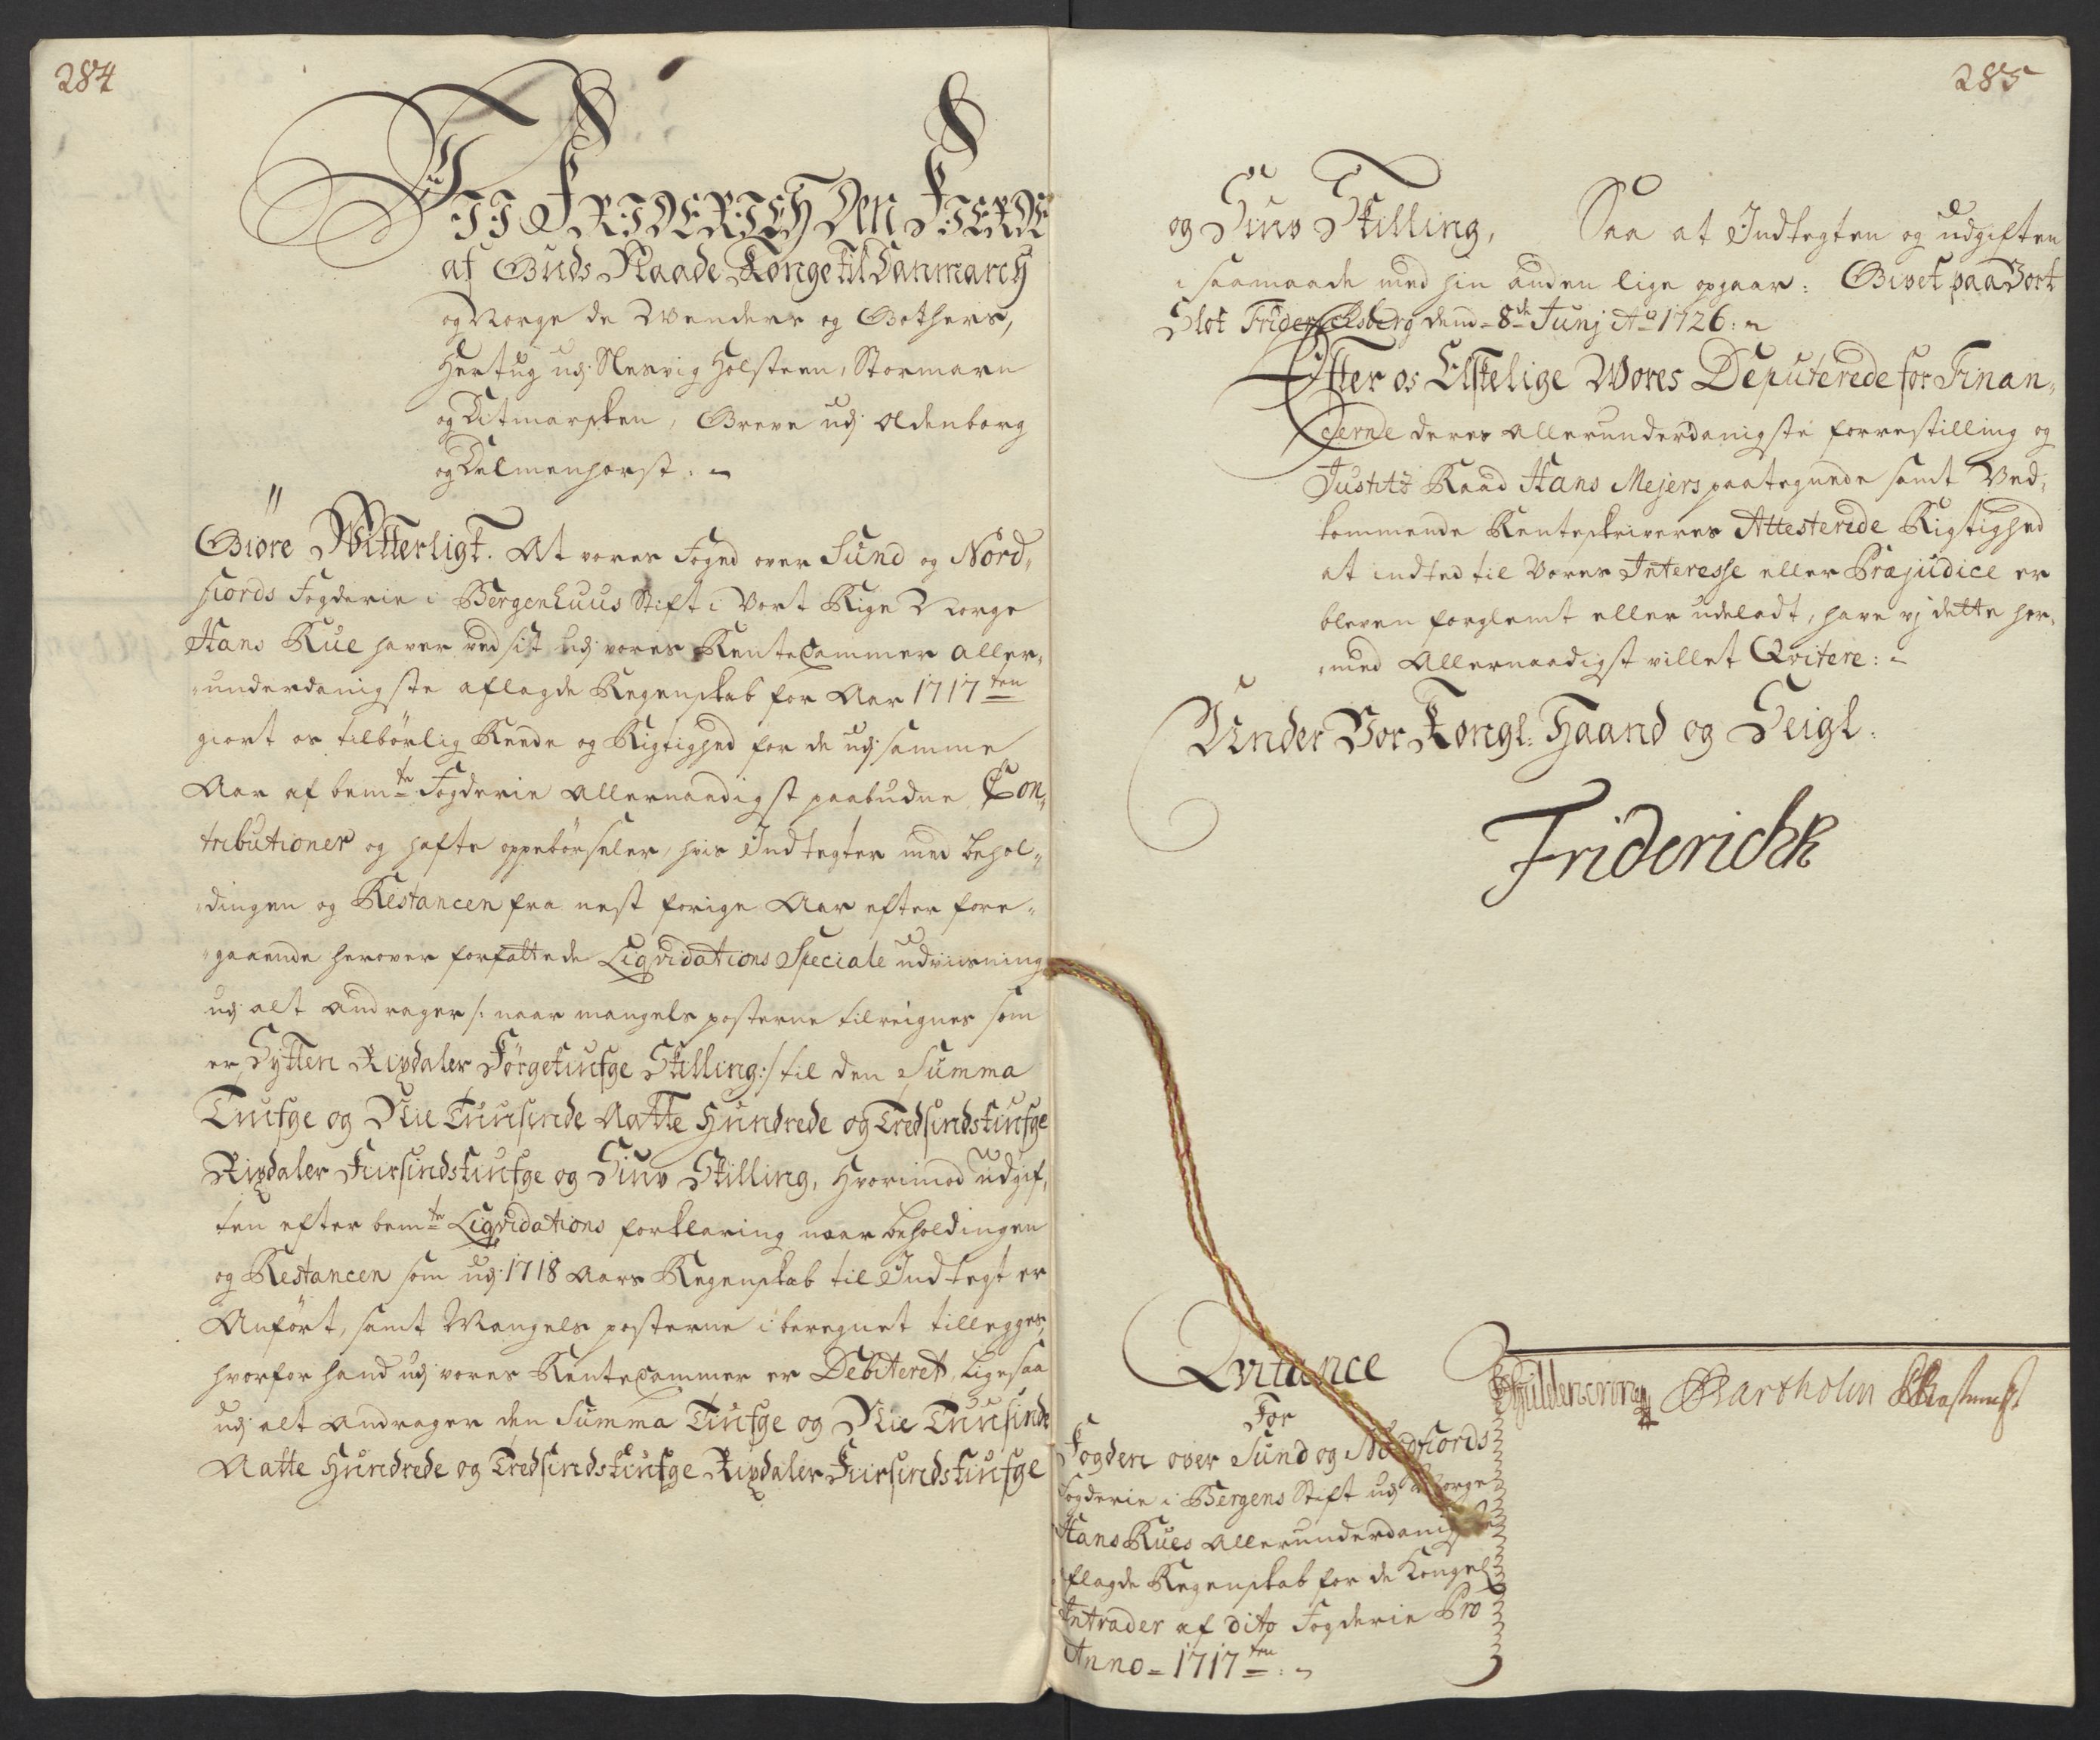 284
VII FRIDERICH Den FIERDE
af Guds Naade Konge til Danmarch
og Norge de Wenders og Gothers,
Hertug udj Slesvig Holsteen, Stormarn
og Ditmarsken, Greve udj Oldenborg
og Delmenhorst:
Giöre Witterligt. At vores Foged over Sund og Nord-
fiords Fogderie i Bergenhuus Stift i Vort Rige Norge
Hans Rue haver ved sit udj vores RenteCammer aller-
underdanigste aflagde Regenskab for Aar 1717ten
giort os tilbörlig Reede og Rigtighed for de udj samme
Aar af bemte Fogderie Allernaadigst paabudne Con-
tributioner og hafte oppebörseler, hvis Indtegter med behol-
dingen og Restancen fra nest forige Aar efter fore-
gaaende herover forfattede Liqvidations Speciale udviisning
udj alt andrager /: naar mangels posterne tilreignes som
er Sytten Rixdaler Förgetiufge Skilling:/ til den Summa
Tiufge og Nie Tuusinde Aatte Hundrede og Tredsindstiufge
Rixdaler Fiirsindstiufge og Siuv Skilling, Hvorimod udgif-
ten efter bemte Liqvidations forklaring naar beholdingen
og Restancen som udj 1718 Aars Regenskab til Indtegt er
Anfört, samt Mangels posterne iberegnet tillegges,
hvorfor hand udj vores RenteCammer er Debiteret, ligesaa
udj alt andrager den Summa Tiufge og Nie Tuusinde
Aatte Hundrede og Tredsindstiufge Rixdaler Fiirsindstiufge
285
og Siuv Skilling, Saa at Indtegten og udgiften
i saamaade med hin anden lige opgaar: Givet paa Vort
Slot Friderichsberg dend 8de Junj Ao 1726:
Efter os Elskelige Wores Deputerede for Finan-
cerne deres allerunderdanigste forrestilling og
Justitz Raad Hans Mejers paategnede samt Ved-
kommende Renteskriveres Attesterede Rigtighed
at indted til Vores Interesse eller Præjudice er
bleven forglemt eller udeladt, have vj dette her-
med Allernaadigst villet Qvitere:
Under Vor Kongl: Haand og Seigl.
Friderich R
Qvitance
For
Fogden over Sund og Nordfiords
Fogderie i Bergens Stift udj Norge
Hans Rues Allerunderdanigst
aflagde Regenskab for de Kongel
Intrader af dito Fogderie Pro
Anno 1717ten:
Bartholin